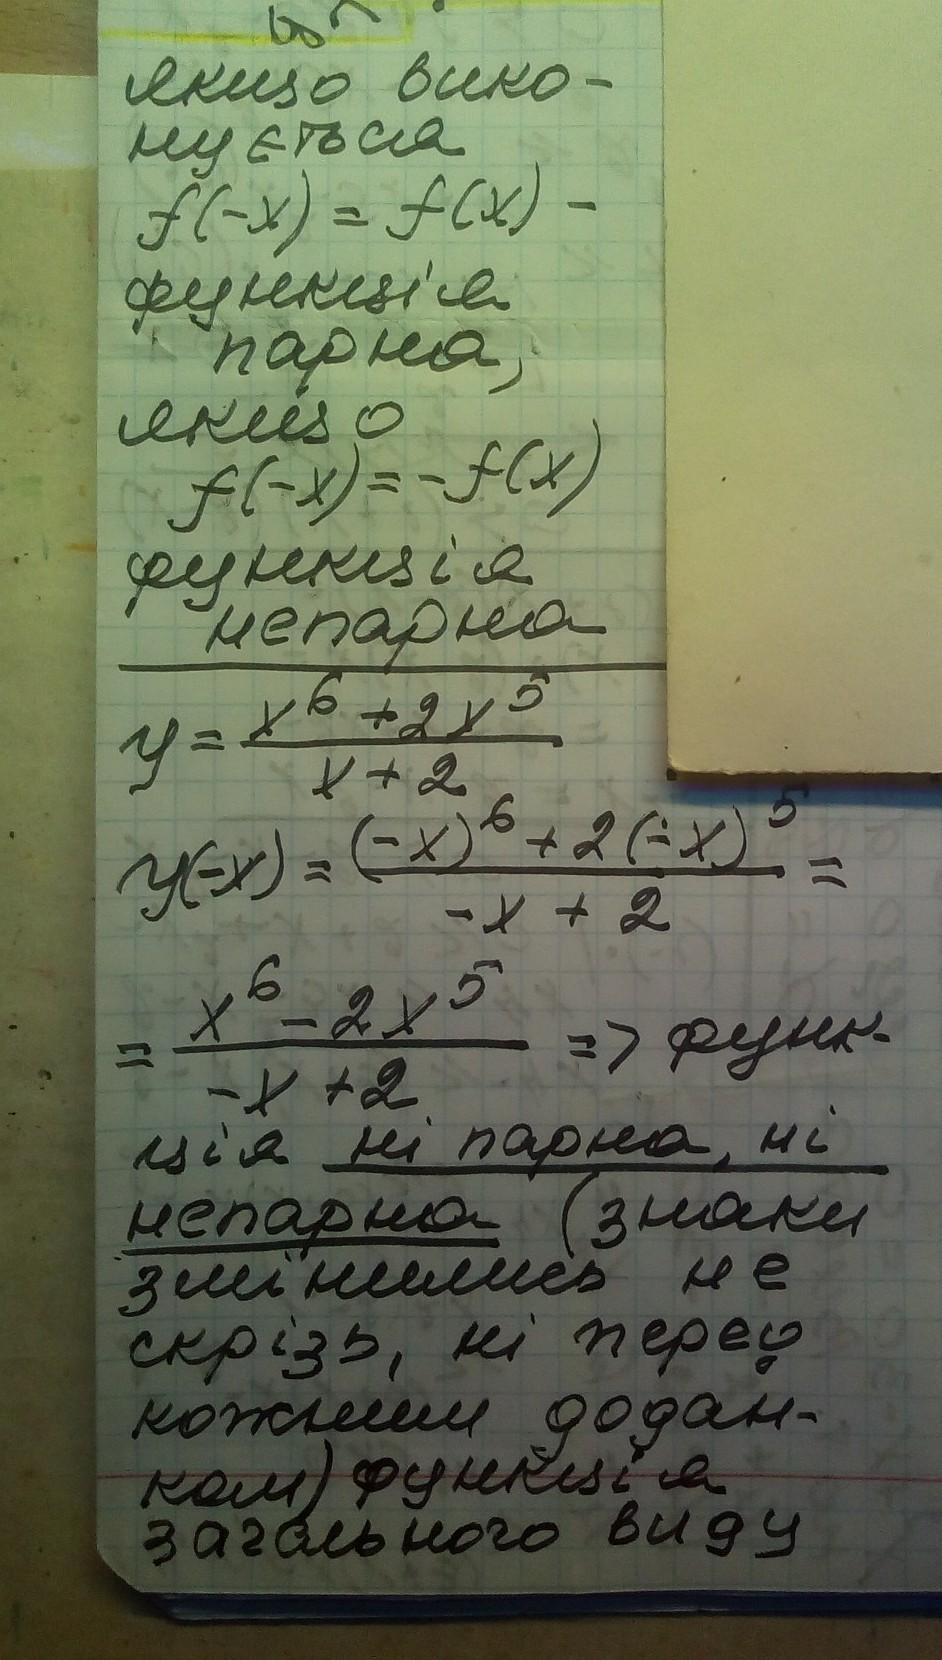 якщо вико-
нується
f(-x) = f(x) -
функція
парна,
якщо
f(-x) = -f(x)
функція
непарна
y = (x^6 + 2x^5)/(x + 2)
y(-x) = ((-x)^6 + 2(-x)^5)/(-x + 2) =
= (x^6 - 2x^5)/(-x + 2) => функ-
ція ні парна, ні
непарна (знаки
змінились не
скрізь, ні перед
кожним додан-
ком) функція
загального виду